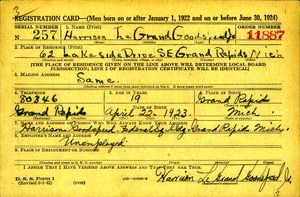 REGISTRATION CARD—(Men born on or after January 1, 1922 and on or before June 30, 1924)
SERIAL NUMBER 1. NAME (Print) ORDER NUMBER
N 257 Harrison Le Grand Goodspeed Jr 11887
2. PLACE OF RESIDENCE (Print)
62 Lakeside Drive SE Grand Rapids Mich
[THE PLACE OF RESIDENCE GIVEN ON THE LINE ABOVE WILL DETERMINE LOCAL BOARD
JURISDICTION; LINE 2 OF REGISTRATION CERTIFICATE WILL BE IDENTICAL]
3. MAILING ADDRESS
Same
4. TELEPHONE 5. AGE IN YEARS 6. PLACE OF BIRTH
80846 19 Grand Rapids
DATE OF BIRTH
Grand Rapids April 22, 1923. Mich.
7. NAME AND ADDRESS OF PERSON WHO WILL ALWAYS KNOW YOUR ADDRESS
Harrison Goodspeed Federal Sq Bldg Grand Rapids Mich.
8. EMPLOYER'S NAME AND ADDRESS
Unemployed
9. PLACE OF EMPLOYMENT OR BUSINESS
I AFFIRM THAT I HAVE VERIFIED ABOVE ANSWERS AND THAT THEY ARE TRUE.
D. S. S. Form 1
Harrison Le Grand Goodspeed Jr.